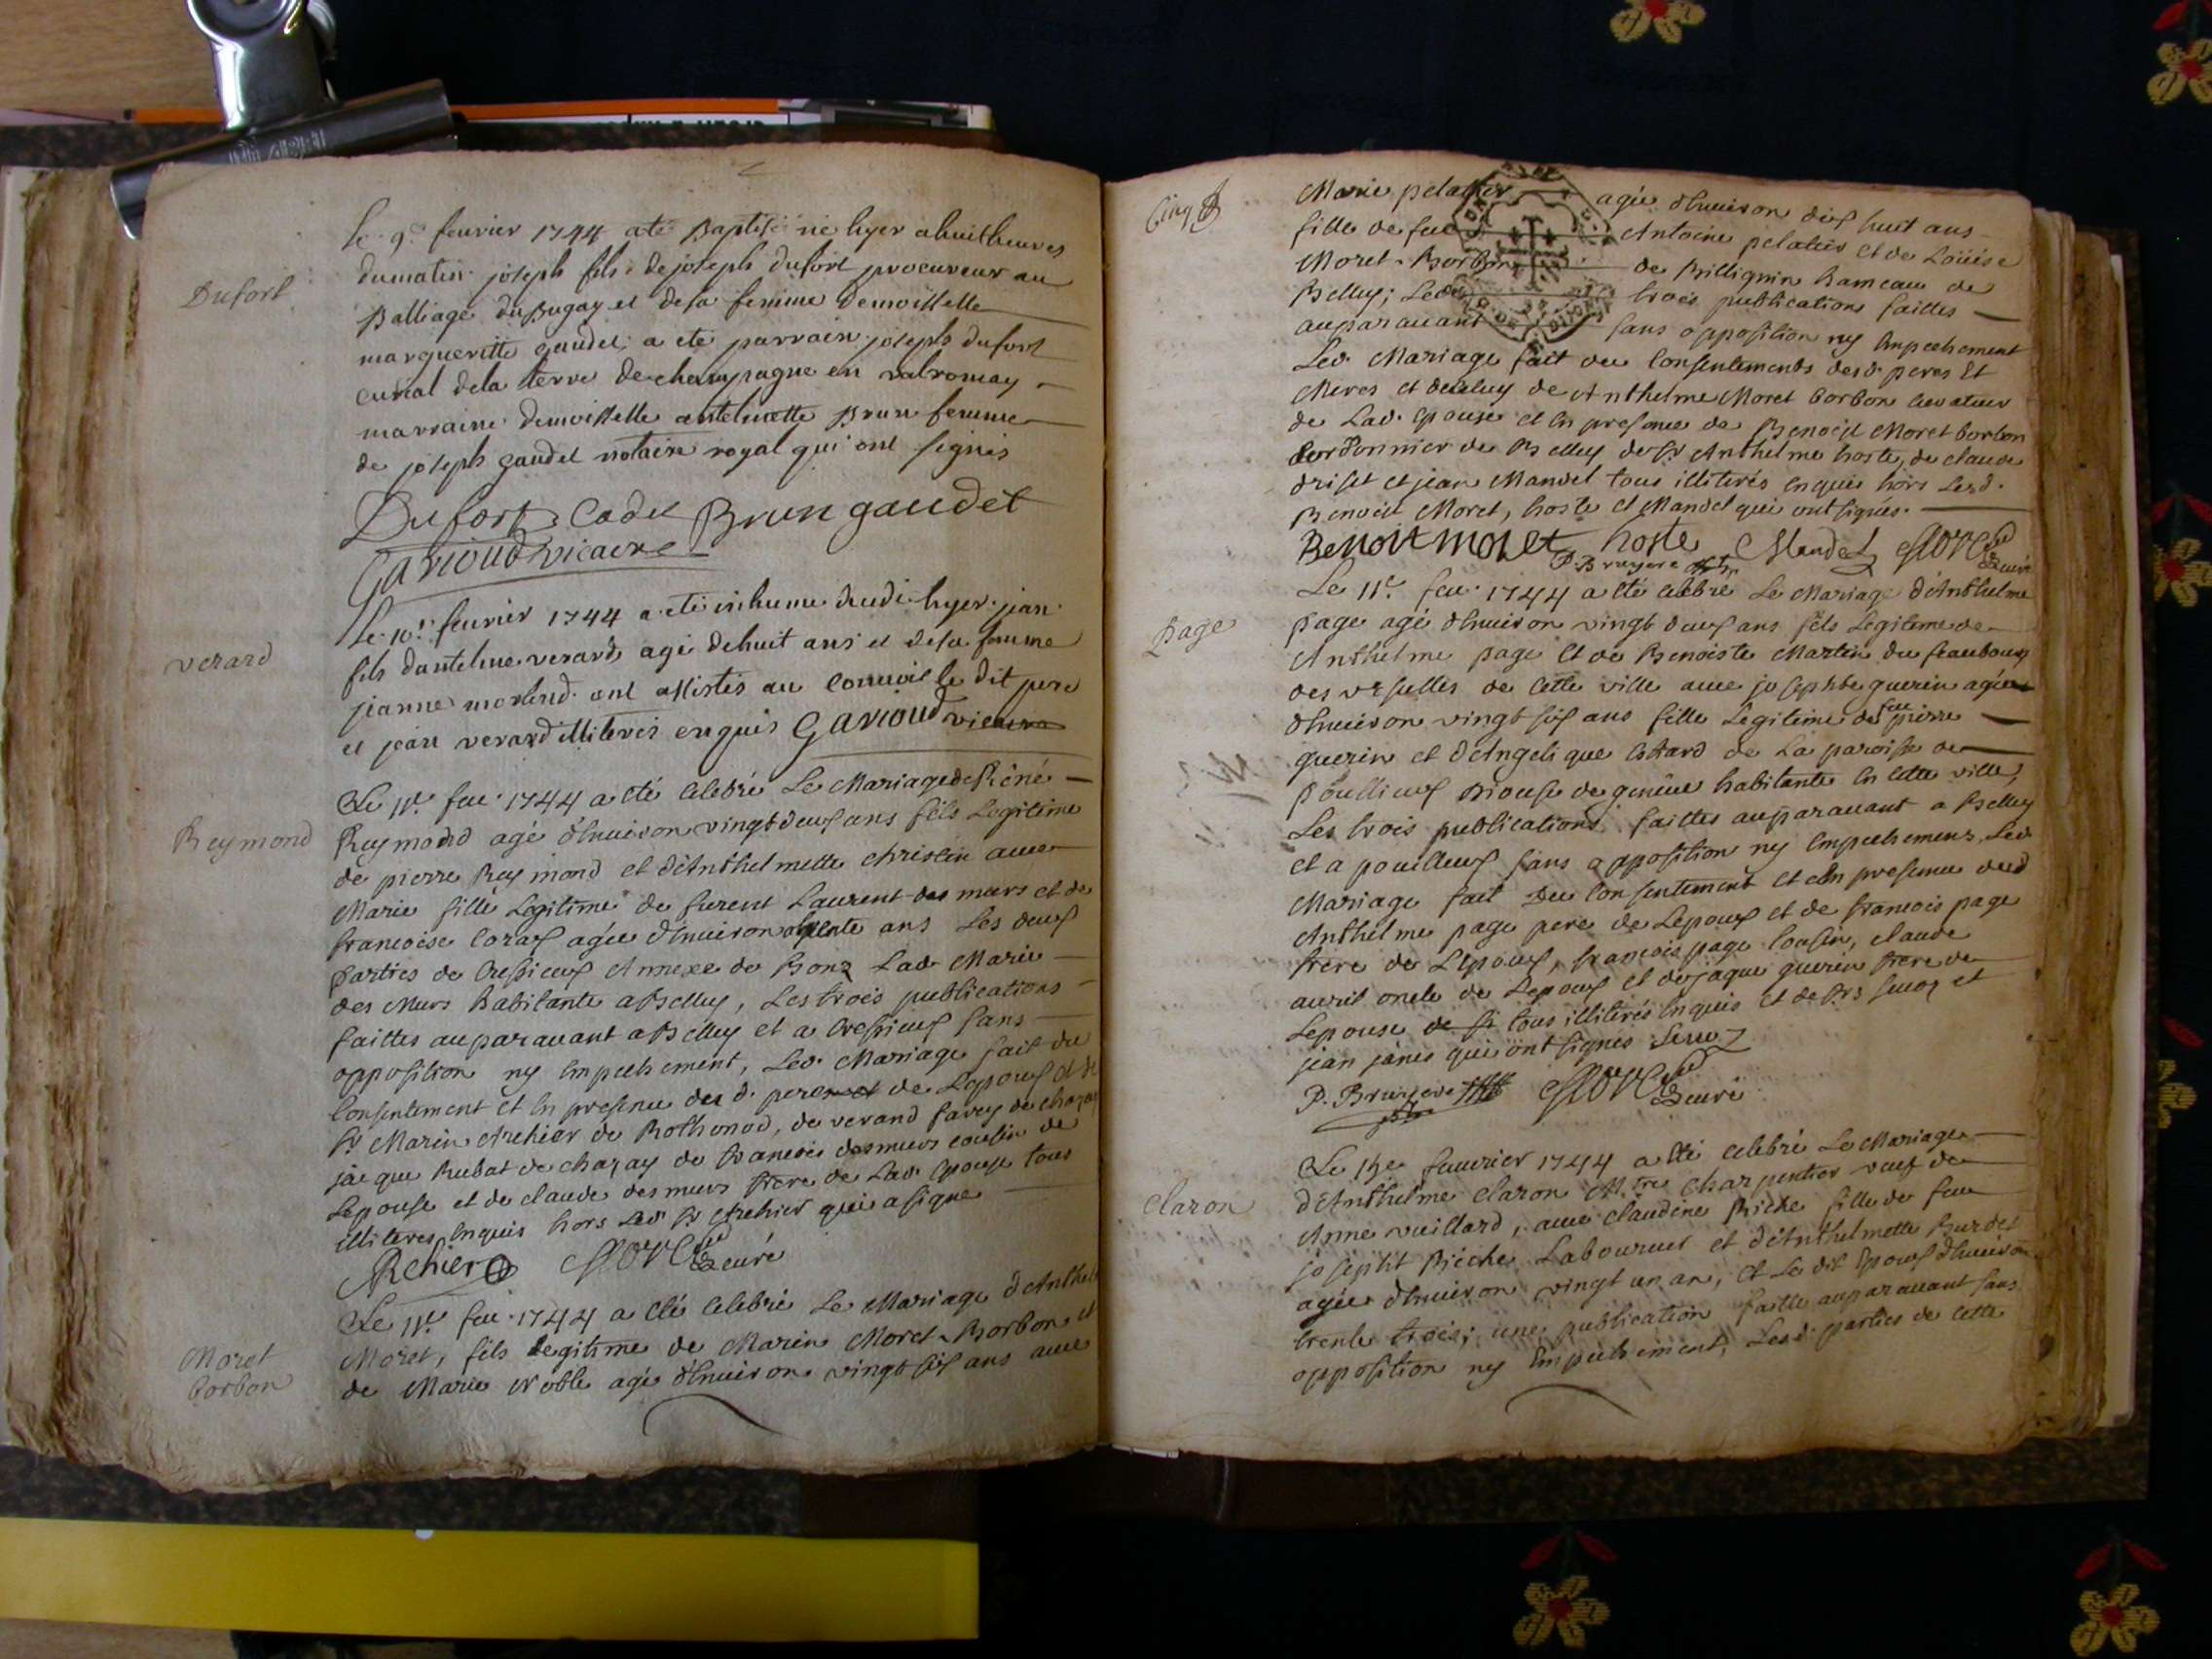 Le 9e feurier 1744 a ete Baptisé né hyer a huit heures
Dufort
du matin joseph fils de joseph dufort procureur au
Balliage du Bugay et de sa femme demoisselle
margueritte gaudet a eté parrain joseph dufort
curial de la terre de champagne en valromay
marraine demoisselle antelmette Brun femme
de joseph gaudet notaire royal qui ont signés
Dufort Cadet Brun gaudet
Garioud vicaire
Le 10e feurier 1744 a eté inhumé hyer jean
verard
fils dantelme verard agé de huit ans et de sa femme
jeanne ont assistés au conuoi le dit pere
et jean verard illiterés enquis Garioud vicaire
Le 11e feu. 1744 a eté celebré Le Mariage de Réné
Reymond
Reymond agé d'hnuiron vingt deux ans fils Legitime
de pierre Reymond et d'Anthelmette christin auec
Marie fille Legitime de furent Laurent des murs et de
francoise Coraz agée d'hnuiron trente ans Les deux
parties de Cressieux Annexe de Bons Lad. Marie
des Murs habitante a Belley, Les trois publications
faittes auparauant a Belley et a Cressieux sans
opposition ny Empeehement, Led. Mariage fait du
Consentement et En presence des d. peres et de Lepoux et de
Sr Marin Archier de Rothonod, de verand fauey de chazay
jâcque Rubat de chazay de francois desmurs cousin de
Lepouse et de claude des murs frere de Lad. Epouse tous
illiteres Enquis hors Led. Sr Archier qui a signe
Archier curé
Le 11e feu. 1744 a eté Celebré Le Mariage d'Anthel
Moret borbon
Moret, fils Legitime de Marin Moret-Borbon et
de Marie Noble agé d'hnuiron vingt six ans auec
Cinq
Marie pelatier agée d'hnuiron dix huit ans
fille de feu Antoine pelatier et de Loüise
Moret-Borbon de Billignin hameau de
Belley; Les trois publications faittes
auparauant sans opposition ny Empeehement
Led. Mariage fait du Consentements des d. peres Et
Meres et de celuy de Anthelme Moret borbon curateur
de Lad. Epouse et En presence de Benoît Moret borbon
Cordonnier de Belley de Sr Anthelme hoste, de claude
driset et jean Mandel tous illiterés Enquis hors Lesd.
Benoît Moret, hoste et Mandel qui ont signes.
Benoit moret hoste Mandel curé
P. Bruyere
Le 11e feu. 1744 a eté celebré Le Mariage d'Anthelme
page
page agé d'hnuiron vingt deux ans fils Legitime de
Anthelme page Et de Benoiste Martin du feaubourg
des vrsulles de Cette ville auec josephte guerin agée
d'hnuiron vingt six ans fille Legitime de feu pierre
guerin et d'Angelique de La paroisse de
poüillieux Diocese de genéue habitante En Cette ville,
Les trois publications faittes auparauant a Belley
et a pouilleux sans opposition ny Empeehements, Led.
Mariage fait Du Consentement et en presence dud
Anthelme page pere de Lepoux et de francois page
frere de Lepoux, francois page Cousin, claude
auril oncle de Lepoux et de jaque guerin frere de
Lepouse de Sr tous illiterés Enquis et de Srs suoz et
jean jànes qui ont signés Seuoz
P. Bruyere curé
Le feuurier 1744 a eté celebré Le Mariage
Claron
d'Anthelme claron Mtre charpentier veuf de
Anne vuillard, auec claudine Riche fille de feu
josephe Riche Laboureur et d'Anthelmette Burdet
agée d'hnuiron vingt un an, et Le dit Epoux d'hnuiron
trente trois; une publication faitte auparauant sans
opposition ny Empeehement, Les d. parties de cette